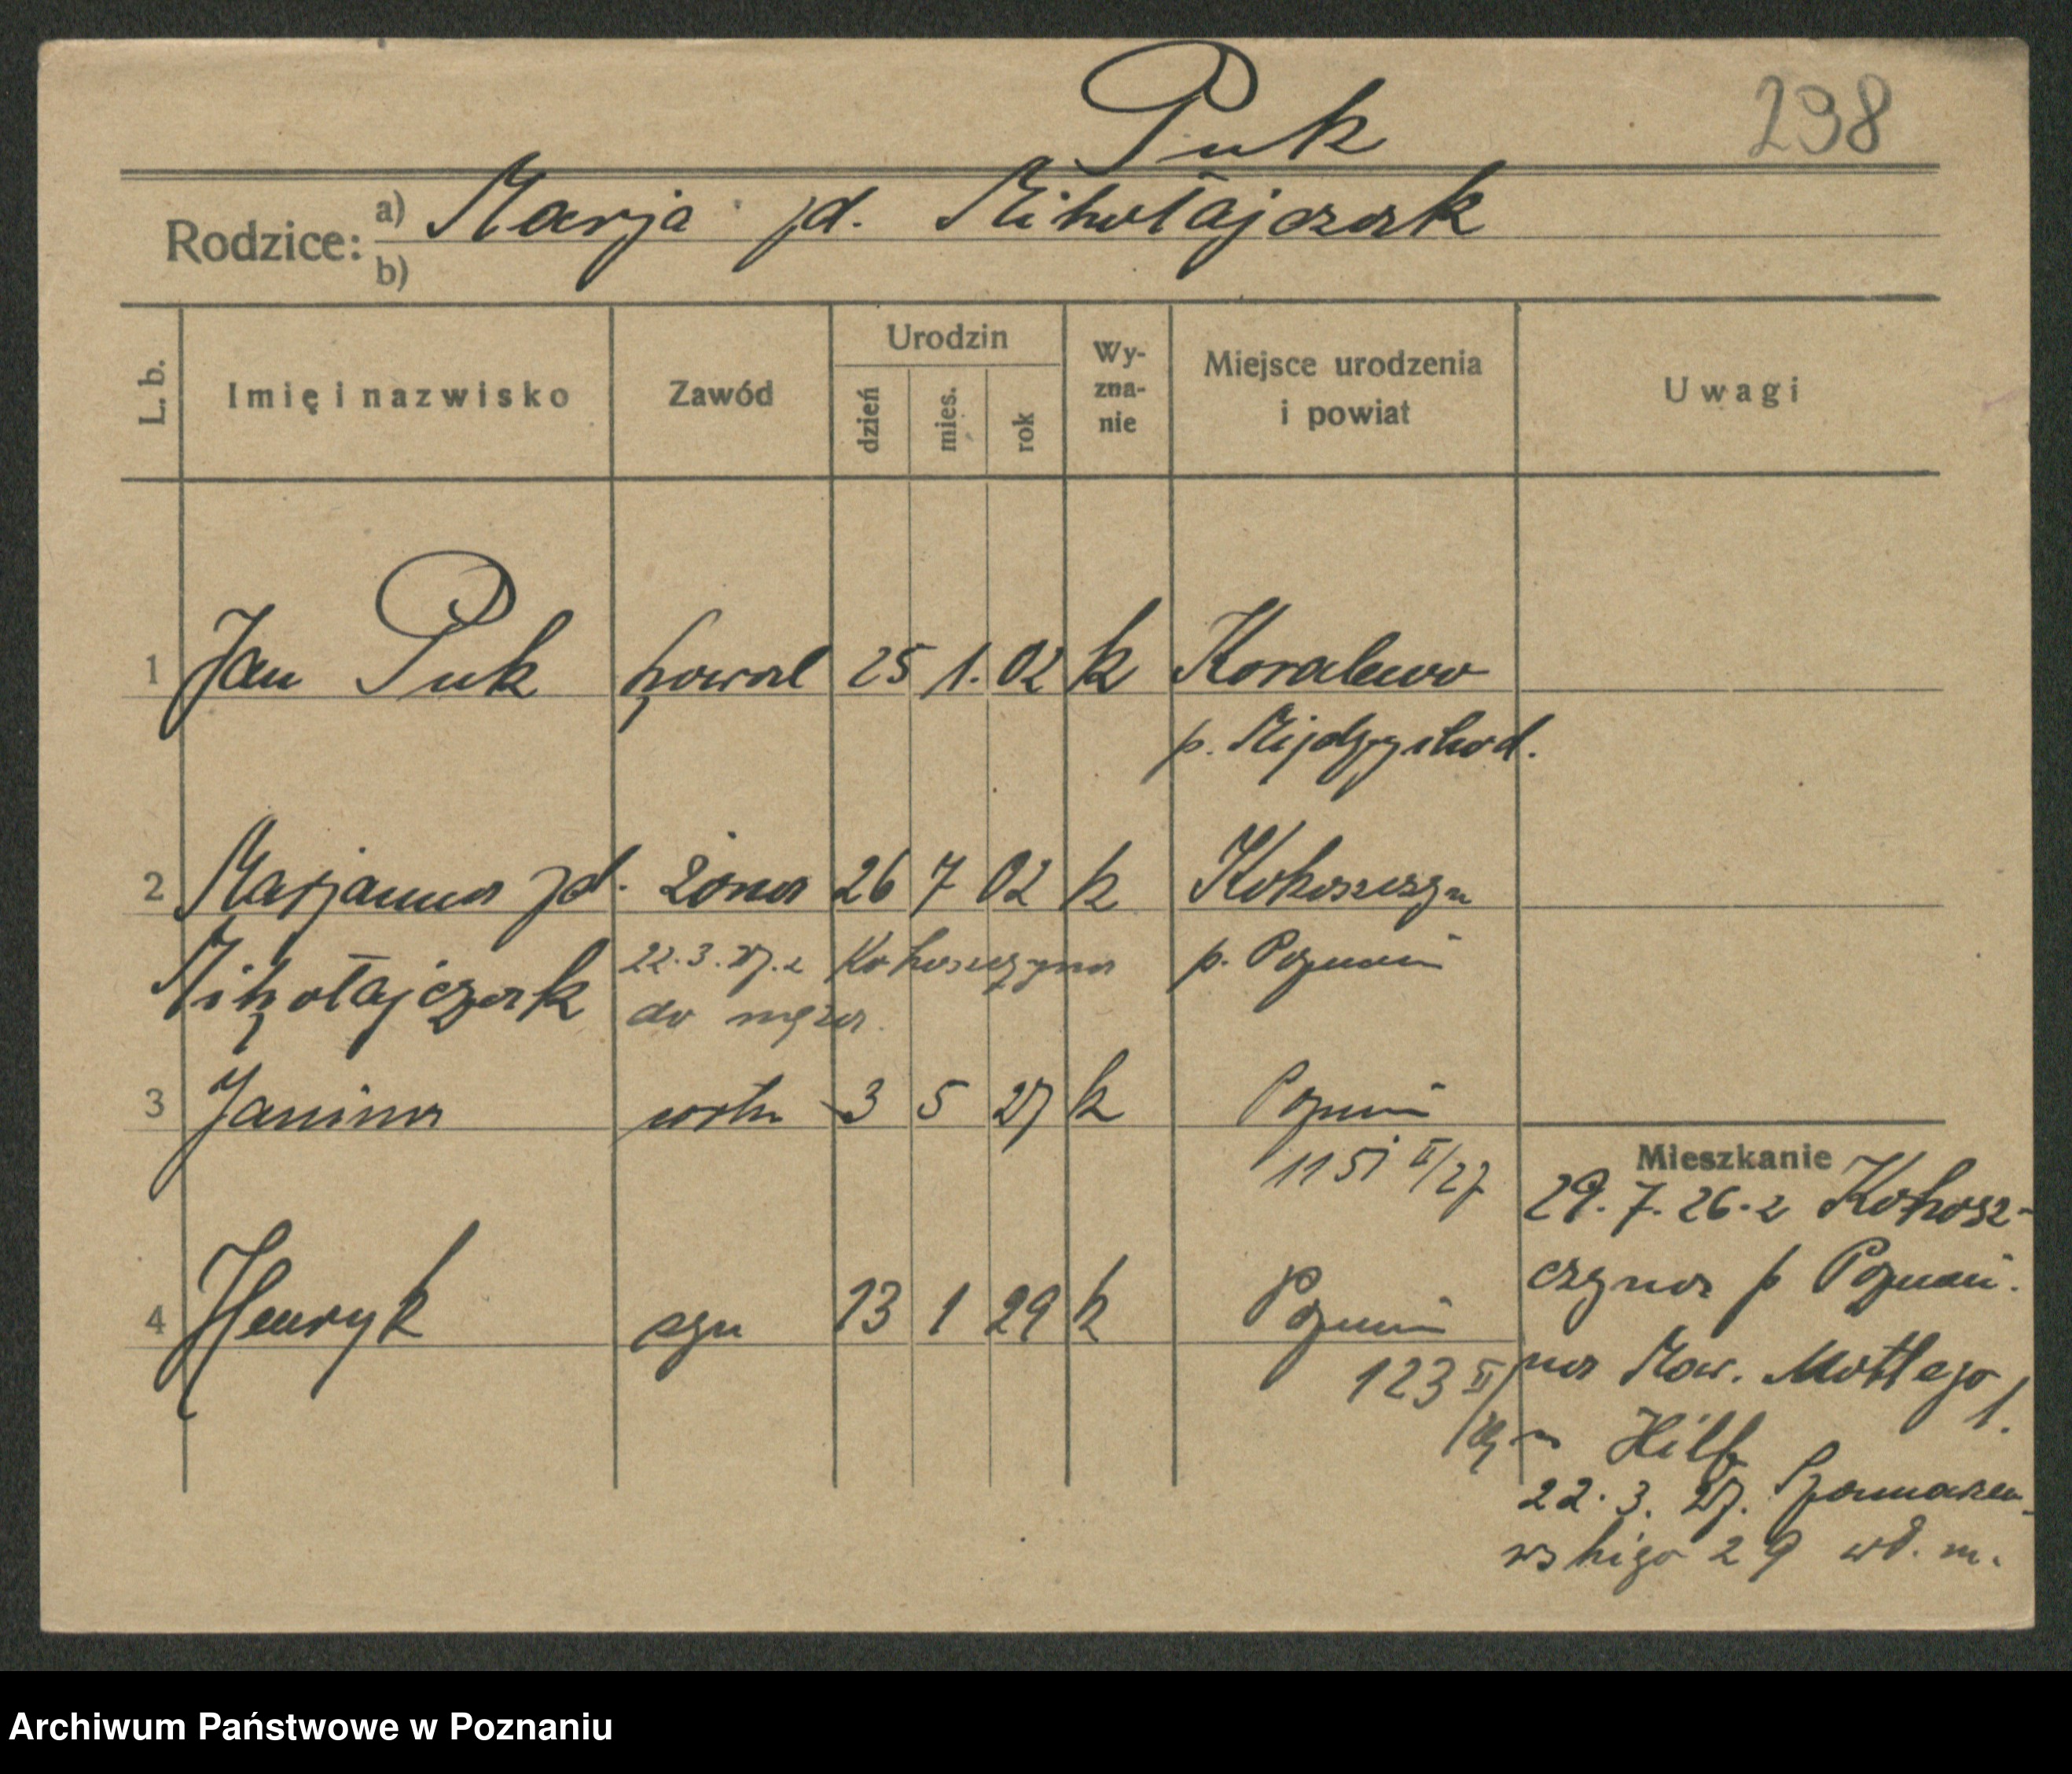 Puk 298
Rodzice: a) Marja zd. Mikołajczak
b)
L. b. Imię i nazwisko Zawód Urodzin dzień mies. rok Wy-zna-nie Miejsce urodzenia i powiat Uwagi
1 Jan Puk kowal 25 1. 02 k Koralewo
p. Mijdzychod.
2 Marjanna zd. żona 26 7 02 k Kokoszczyn
Mikołajczak 22.3.27. z Kokoszczyna p. Poznań
do męża.
3 Janina córka 3 5 27 k Poznań
115i II/27
Mieszkanie
29. 7. 26. z Kokosz-
czyna p Poznań.
4 Henryk syn 13 1 29 k Poznań
123 II/
na Mottego 1.
22. 3. 27.
29 wł. m.
Archiwum Państwowe w Poznaniu